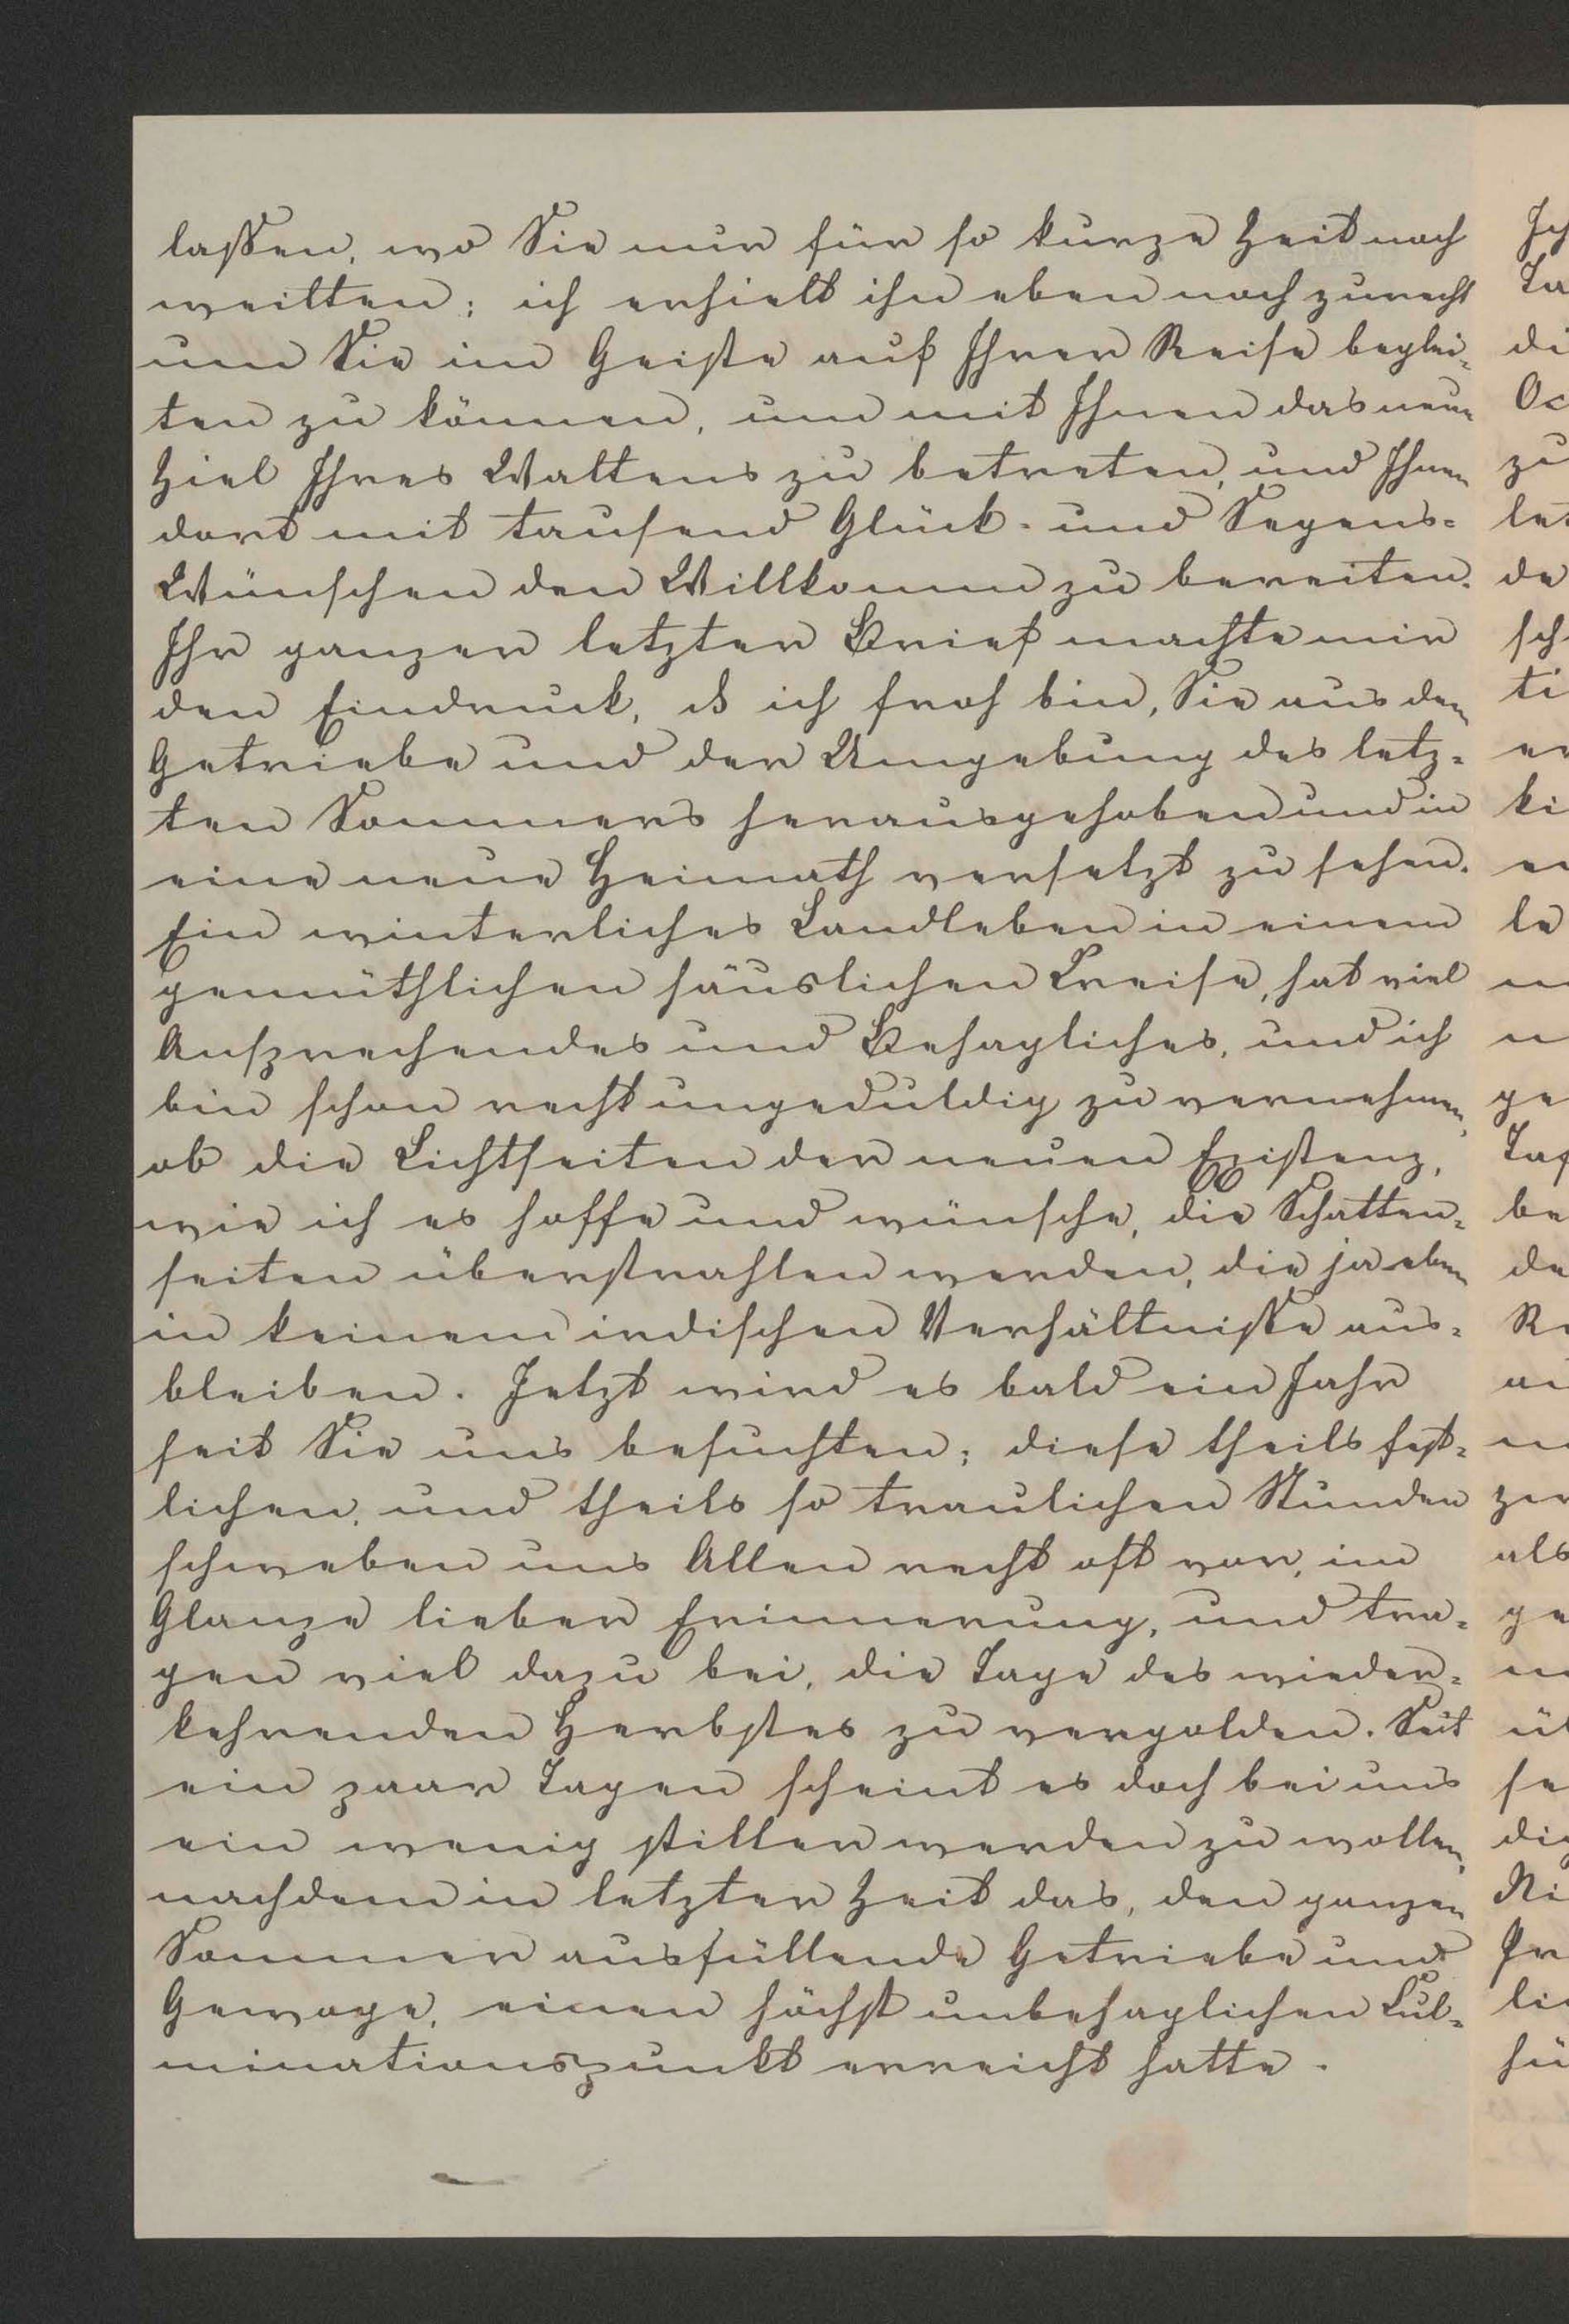 laßen, wo Sie nur für so kurze Zeit noch
weilten; ich erhielt ihn eben noch zurecht
um Sie im Geiste auf Ihrer Reise beglei-
ten zu können, um mit Ihnen das neue
Ziel Ihres Waltens zu betreten, und Ihnen
dort mit tausend Glück- und Segens-
Wünschen den Willkomm zu bereiten.
Ihr ganzer letzter Brief machte mir
den Eindruck, ich froh bin, Sie aus dem
Getriebe und der Umgebung des letz-
ten Sommers herausgehoben und in
eine neue Heimath versetzt zu sehen.
Ein winterliches Landleben in einem
gemüthlichen häuslichen Kreise, hat viel
Ansprechendes und Behagliches, und ich
bin schon recht ungeduldig zu vernehmen,
ob die Lichtseiten der neuen Existenz,
wie ich es hoffe und wünsche, die Schatten-
seiten überstrahlen werden, die ja eben
in keinem irdischen Verhältniße aus-
bleiben. Jetzt wird es bald ein Jahr
seit Sie uns besuchten; diese theils fest-
lichen, und theils so traulichen Stunden
schweben uns Allen recht oft vor, im
Glanze lieber Erinnerung, und tra-
gen viel dazu bei, die Tage des wieder-
kehrenden Herbstes zu vergolden. Seit
ein paar Tagen scheint es doch bei uns
ein wenig stiller werden zu wollen,
nachdem in letzter Zeit das, den ganzen
Sommer ausfüllende Getriebe und
Gewoge, einen höchst unbehaglichen Cul-
minationspunkt erreicht hatte.